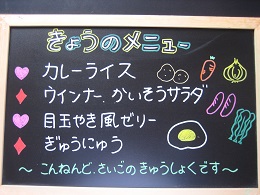 きょうのメニュー
カレーライス
ウインナー、かいそうサラダ
目玉やき風ゼリー
ぎゅうにゅう
～こんねんど、さいごのきゅうしょくです～